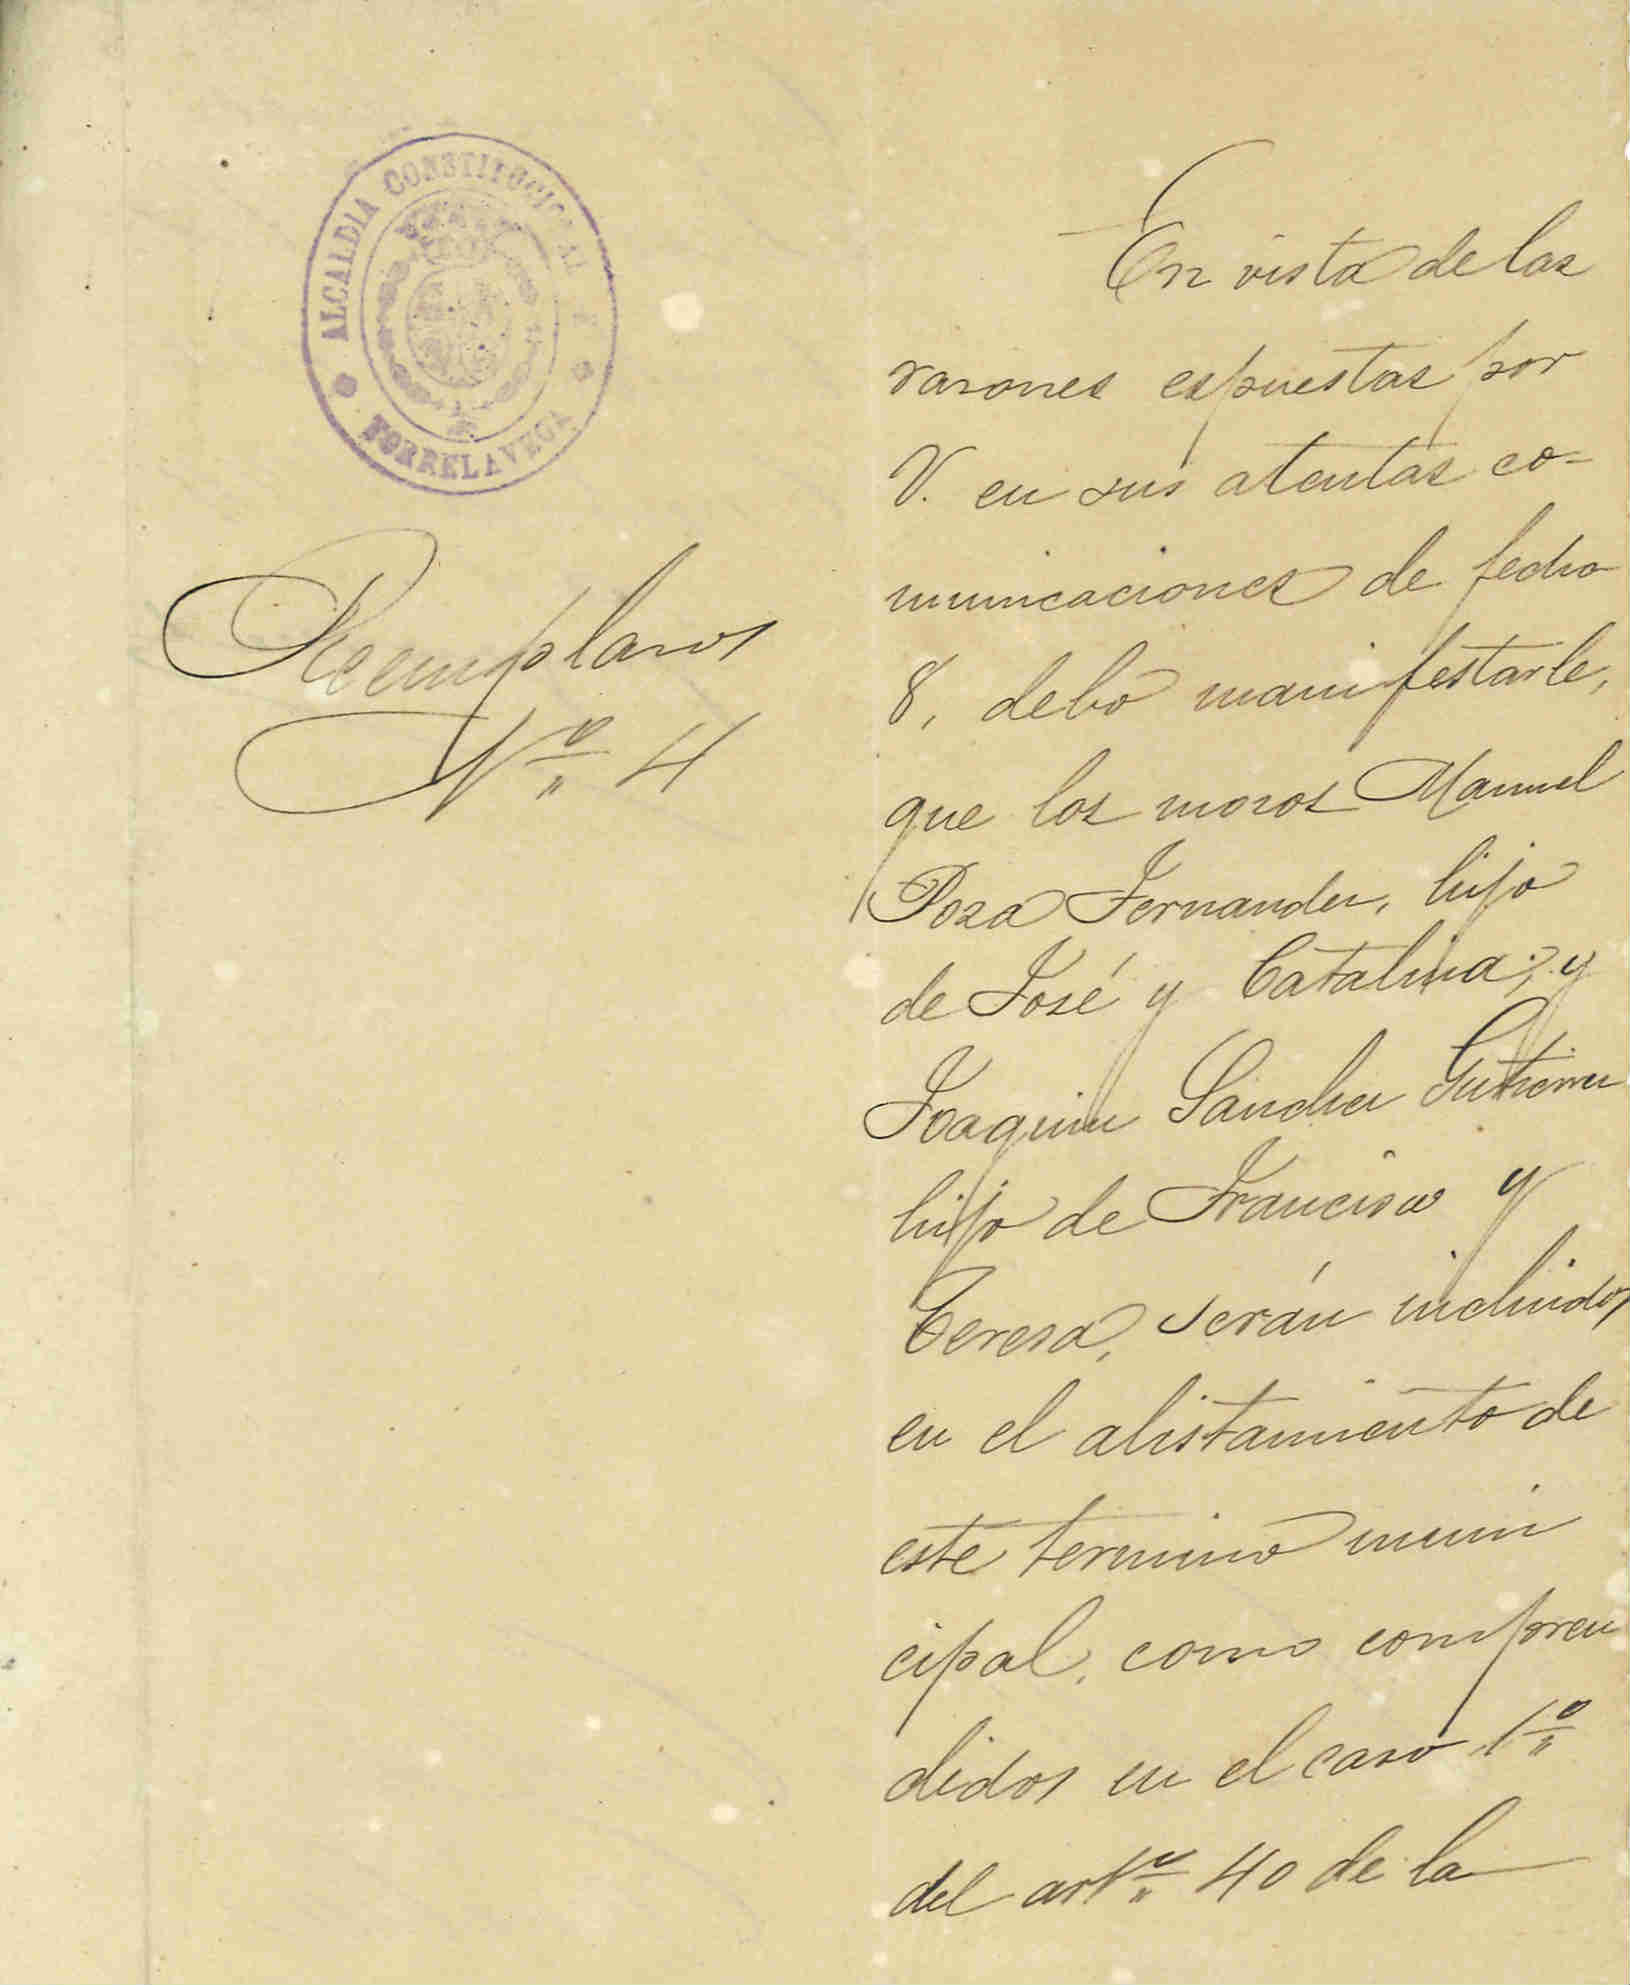 ALCALDIA CONSTITUCIONAL DE
TORRELAVEGA
Reemplazos
Nº 4
En vista de las
razones espuestas por
V. en sus atentas co-
municaciones de fecha
8, debo manifestarle,
que los mozos Manuel
Poza Fernandez, hijo
de José y Catalina; y
Joaquin Sanchez Gutierrez
hijo de Francisco y
Teresa, serán incluidos
en el alistamiento de
este termino muni
cipal, como compren
didos en el caso 1º
del artº 40 de la